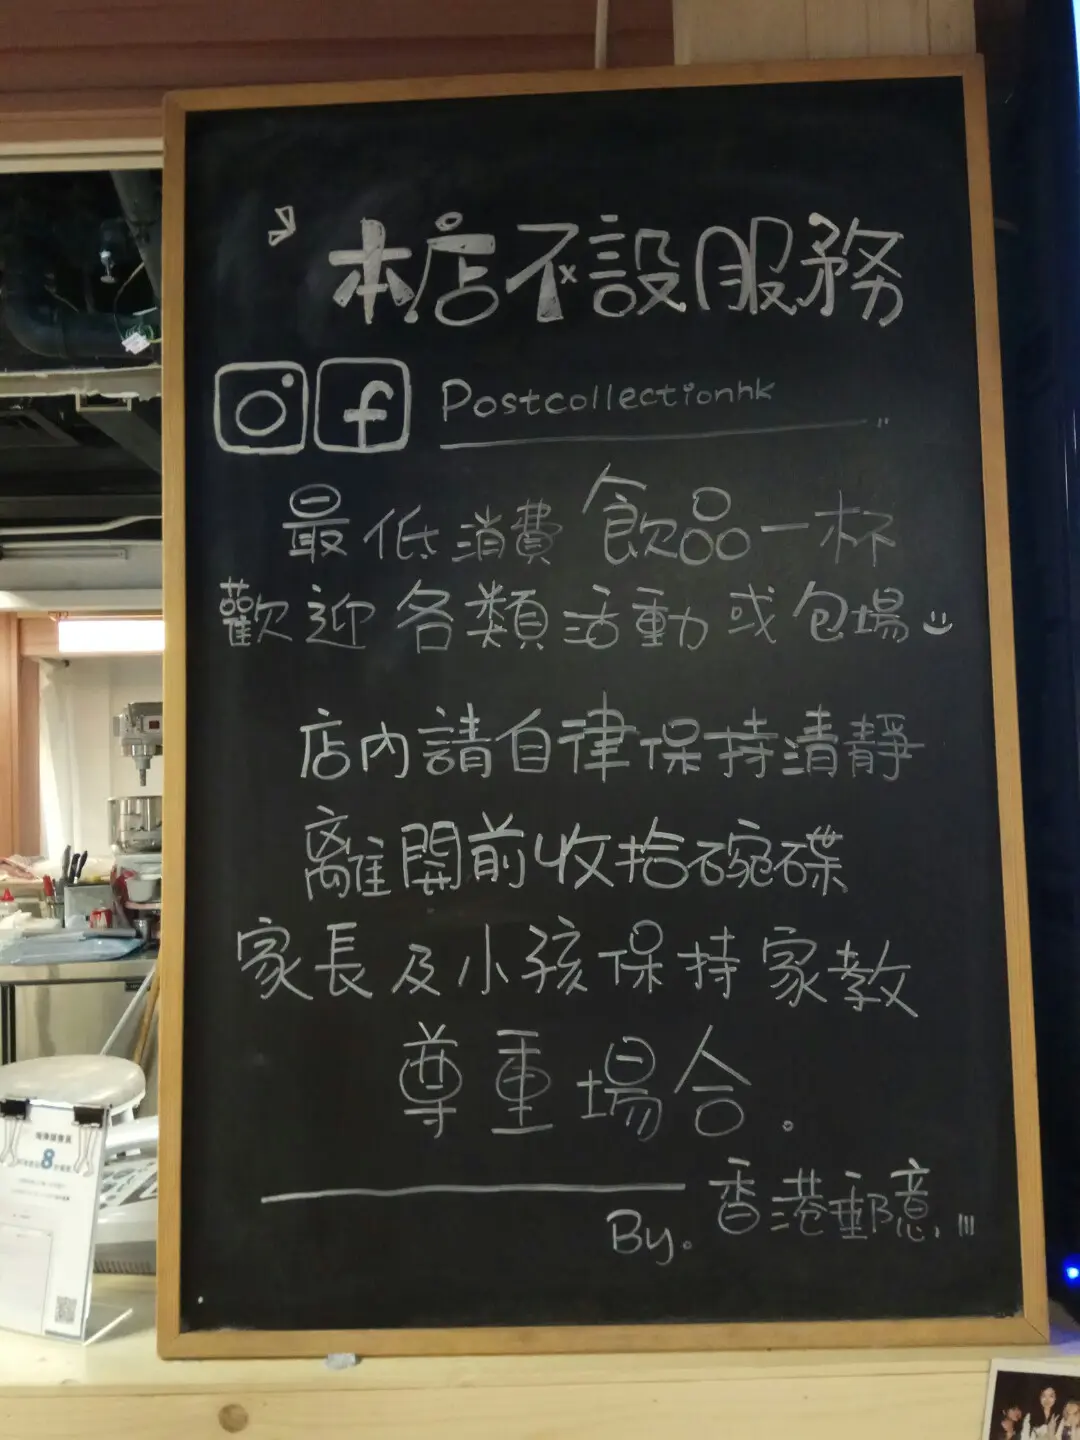 本店不設服務
Postcollectionhk
最低消費 飲品一杯
歡迎各類活動或包場
店內請自律保持清靜
離開前收拾碗碟
家長及小孩保持家教
尊重場合.
By. 香港郵意
8